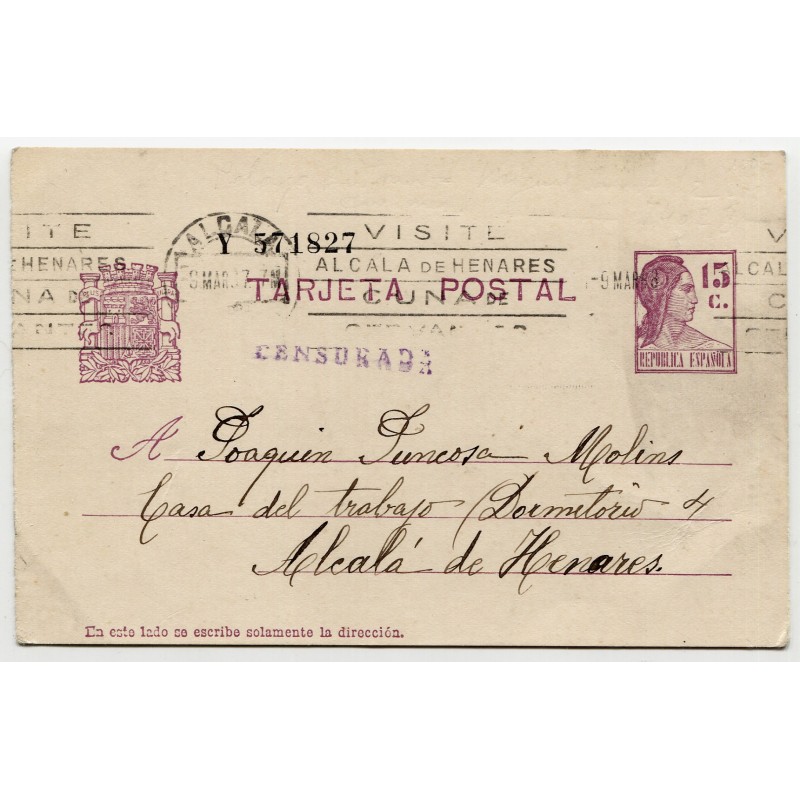 ITE VISITE V
ALCALA
Y 571827
HENARES ALCALA DE HENARES ALCAL
9 MAR 37. 7 M -9 MAR
15
UNA DE CUNA DE C
TARJETA POSTAL c.
CERVANTES
REPUBLICA ESPAÑOLA
CENSURADA
A Joaquin Juncosá Molins
Casa del trabajo (Dormitorio 4
Alcalá de Henares.
En este lado se escribe solamente la dirección.